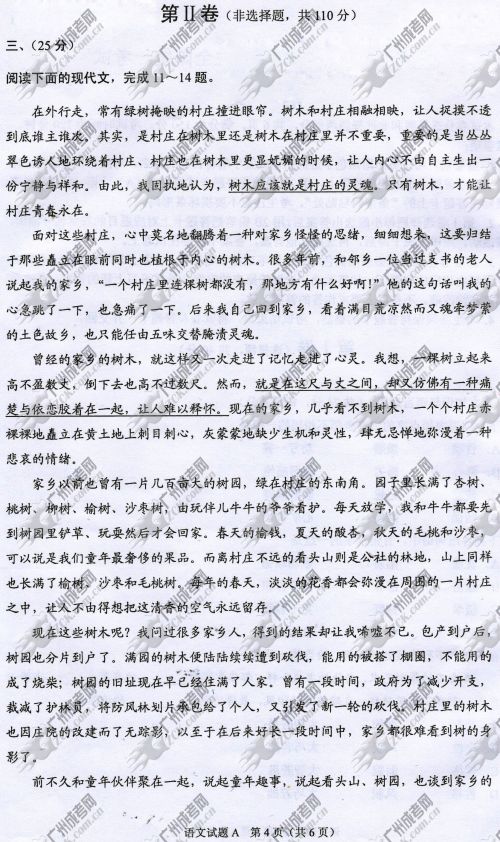 第Ⅱ卷（非选择题，共110分）
三、（25分）
阅读下面的现代文，完成11～14题。
在外行走，常有绿树掩映的村庄撞进眼帘。树木和村庄相融相映，让人捉摸不透
到底谁主谁次。其实，是村庄在树木里还是树木在村庄里并不重要，重要的是当丛丛
翠色诱人地环绕着村庄、村庄也在树木里更显妩媚的时候，让人内心不由自主生出一
份宁静与祥和。由此，我固执地认为，树木应该就是村庄的灵魂。只有树木，才能让
村庄青春永在。
面对这些村庄，心中莫名地翻腾着一种对家乡怪怪的思绪，细细想来，这要归结
于那些矗立在眼前同时也植根于内心的树木。很多年前，和邻乡一位当过支书的老人
说起我的家乡，“一个村庄里连棵树都没有，那地方有什么好啊！”他的这句话叫我的
心急跳了一下，也急痛了一下。后来我自己回到家乡，看着满目荒凉然而又魂牵梦萦
的土色故乡，也只能任由五味交替腌渍灵魂。
曾经的家乡的树木，就这样又一次走进了记忆走进了心灵。我想，一棵树立起来
高不盈数丈，倒下去也高不过数尺。然而，就是在这尺与丈之间，却又仿佛有一种痛
楚与依恋胶着在一起，让人难以释怀。现在的家乡，几乎看不到树木，一个个村庄赤
裸裸地矗立在黄土地上刺目刺心，灰蒙蒙地缺少生机和灵性，肆无忌惮地弥漫着一种
悲哀的情绪。
家乡以前也曾有一片几百亩大的树园，绿在村庄的东南角。园子里长满了杏树、
桃树、柳树、榆树、沙枣树，由玩伴儿牛牛的爷爷看护。每天放学，我和牛牛都要先
到树园里铲草、玩耍然后才会回家。春天的榆钱，夏天的酸杏，秋天的毛桃和沙枣，
可以说是我们童年最奢侈的果品。而离村庄不远的看头山则是公社的林地，山上同样
也长满了榆树、沙枣和毛桃树。每年的春天，淡淡的花香都会弥漫在周围的一片村庄
之中，让人不由得想把这清香的空气永远留存。
现在这些树木呢？我问过很多家乡人，得到的结果却让我唏嘘不已。包产到户后，
树园也分片到户了。满园的树木便陆陆续续遭到砍伐，能用的被搭了棚圈，不能用的
成了烧柴；树园的旧址现在早已经住满了人家。曾有一段时间，政府为了减少开支，
裁减了护林员，将防风林划片承包给了个人，又引发了新一轮的砍伐。村庄里的树木
也因庄院的改建而了无踪影，以至于在后来好长一段时间中，家乡都很难看到树的身
影了。
前不久和童年伙伴聚在一起，说起童年趣事，说起看头山、树园，也谈到家乡的
语文试题A 第4页（共6页）
广州成考网
www.gzck.com.cn